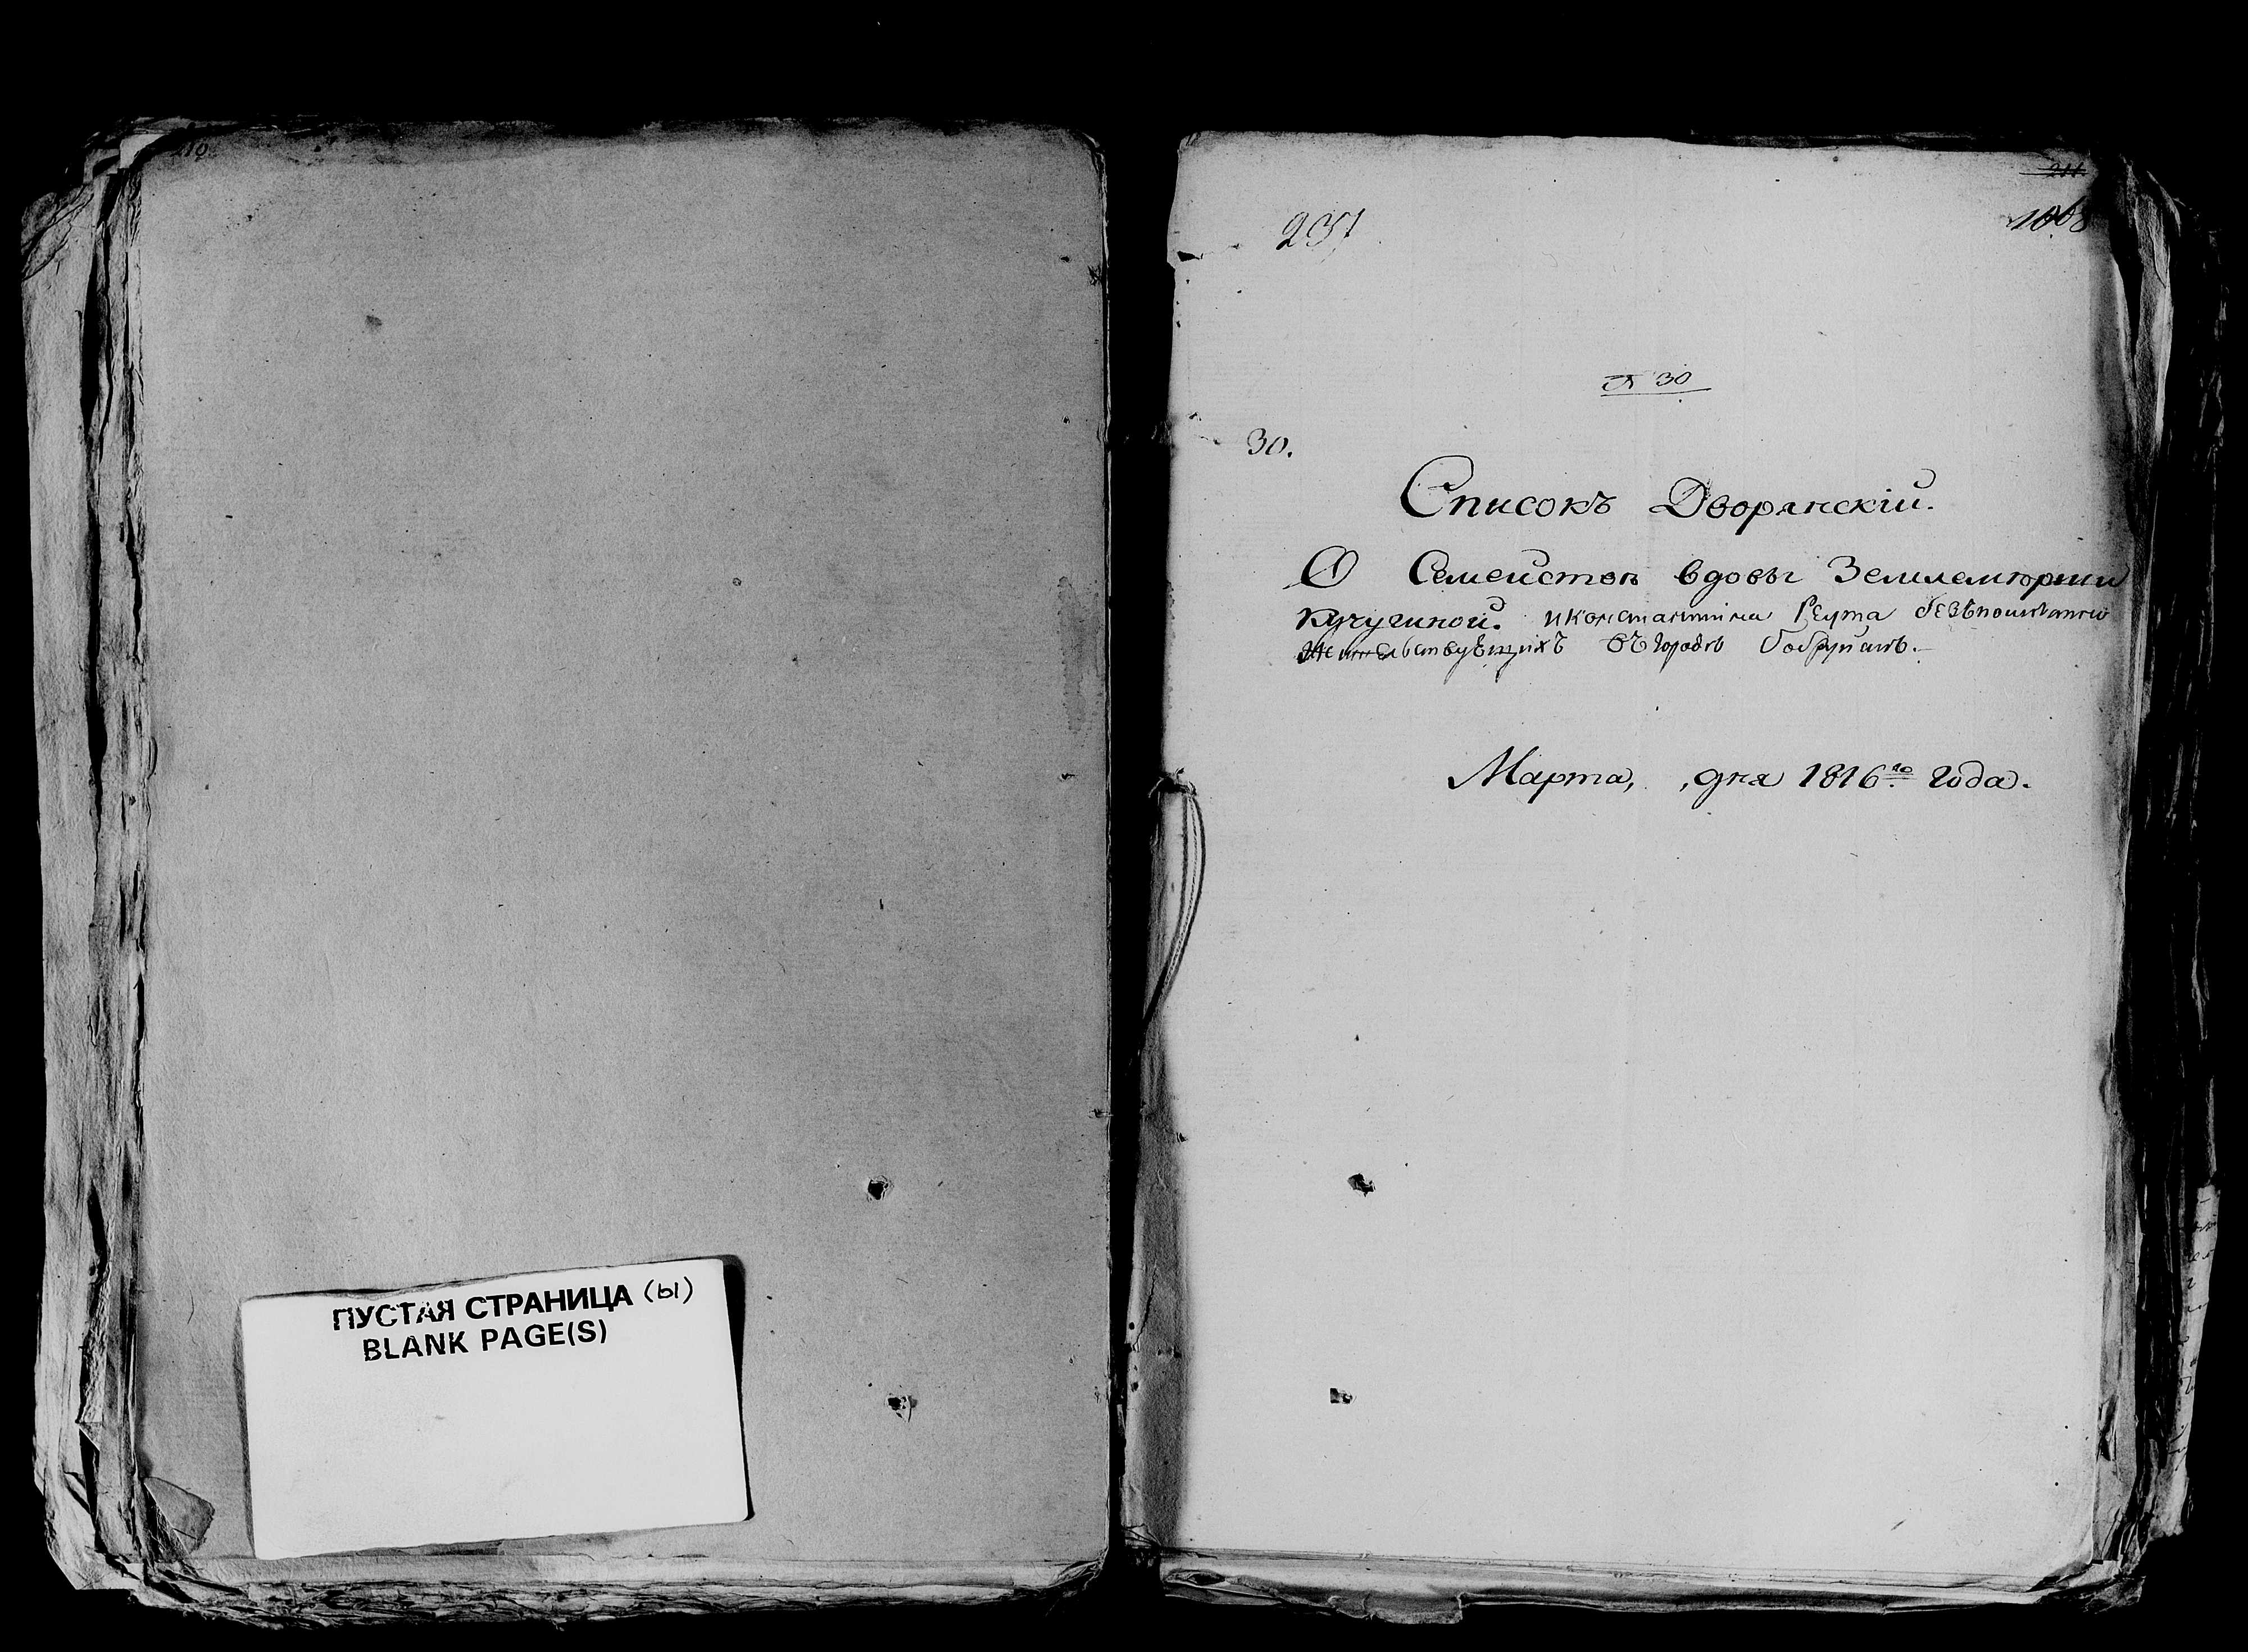 210.
ПУСТАЯ СТРАНИЦА (ы)
BLANK PAGE(S)
211.
237
1068
№ 30
30.
Списокъ Дворянскій.
О Семействѣ вдовы Землемѣрши
Кучугиной. и константина Реута
Жительствующихъ въ городѣ Бобруйскѣ.
Марта, дня 1816го года.